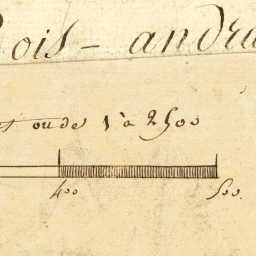 Bois - andra
et ou de 1 à 2500
400 500.